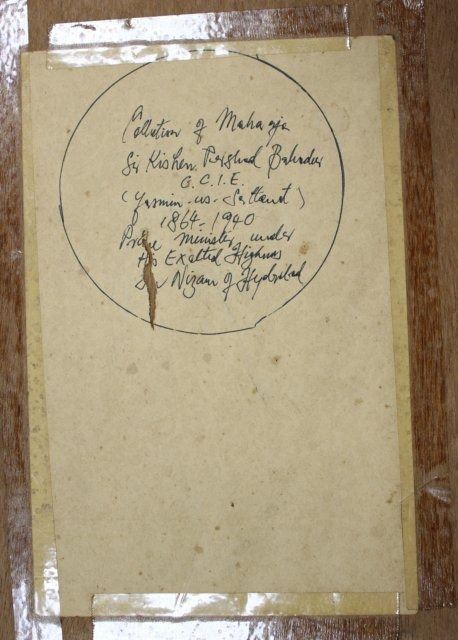 Collection of Maharaja
Sir Kishen Pershad Bahadur
G.C.I.E.
(Yamin-us-Saltanat)
1864-1940
Prime Minister under
His Exalted Highness
the Nizam of Hyderabad